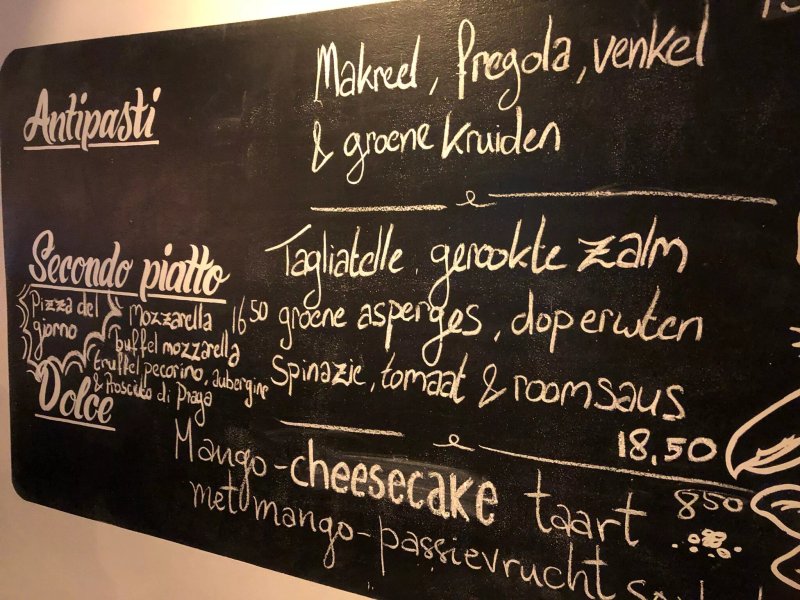 Antipasti
Makreel, Fregola, venkel
& groene kruiden
Secondo piatto
Tagliatelle, gerookte zalm
groene asperges, doperwten
Spinazie, tomaat & roomsaus
18,50
Pizza del
giorno
Mozzarella 16 50
buffel mozzarella
truffel pecorino, aubergine
& Prosciutto di Praga
Dolce
Mango-cheesecake taart 850
met mango-passievrucht